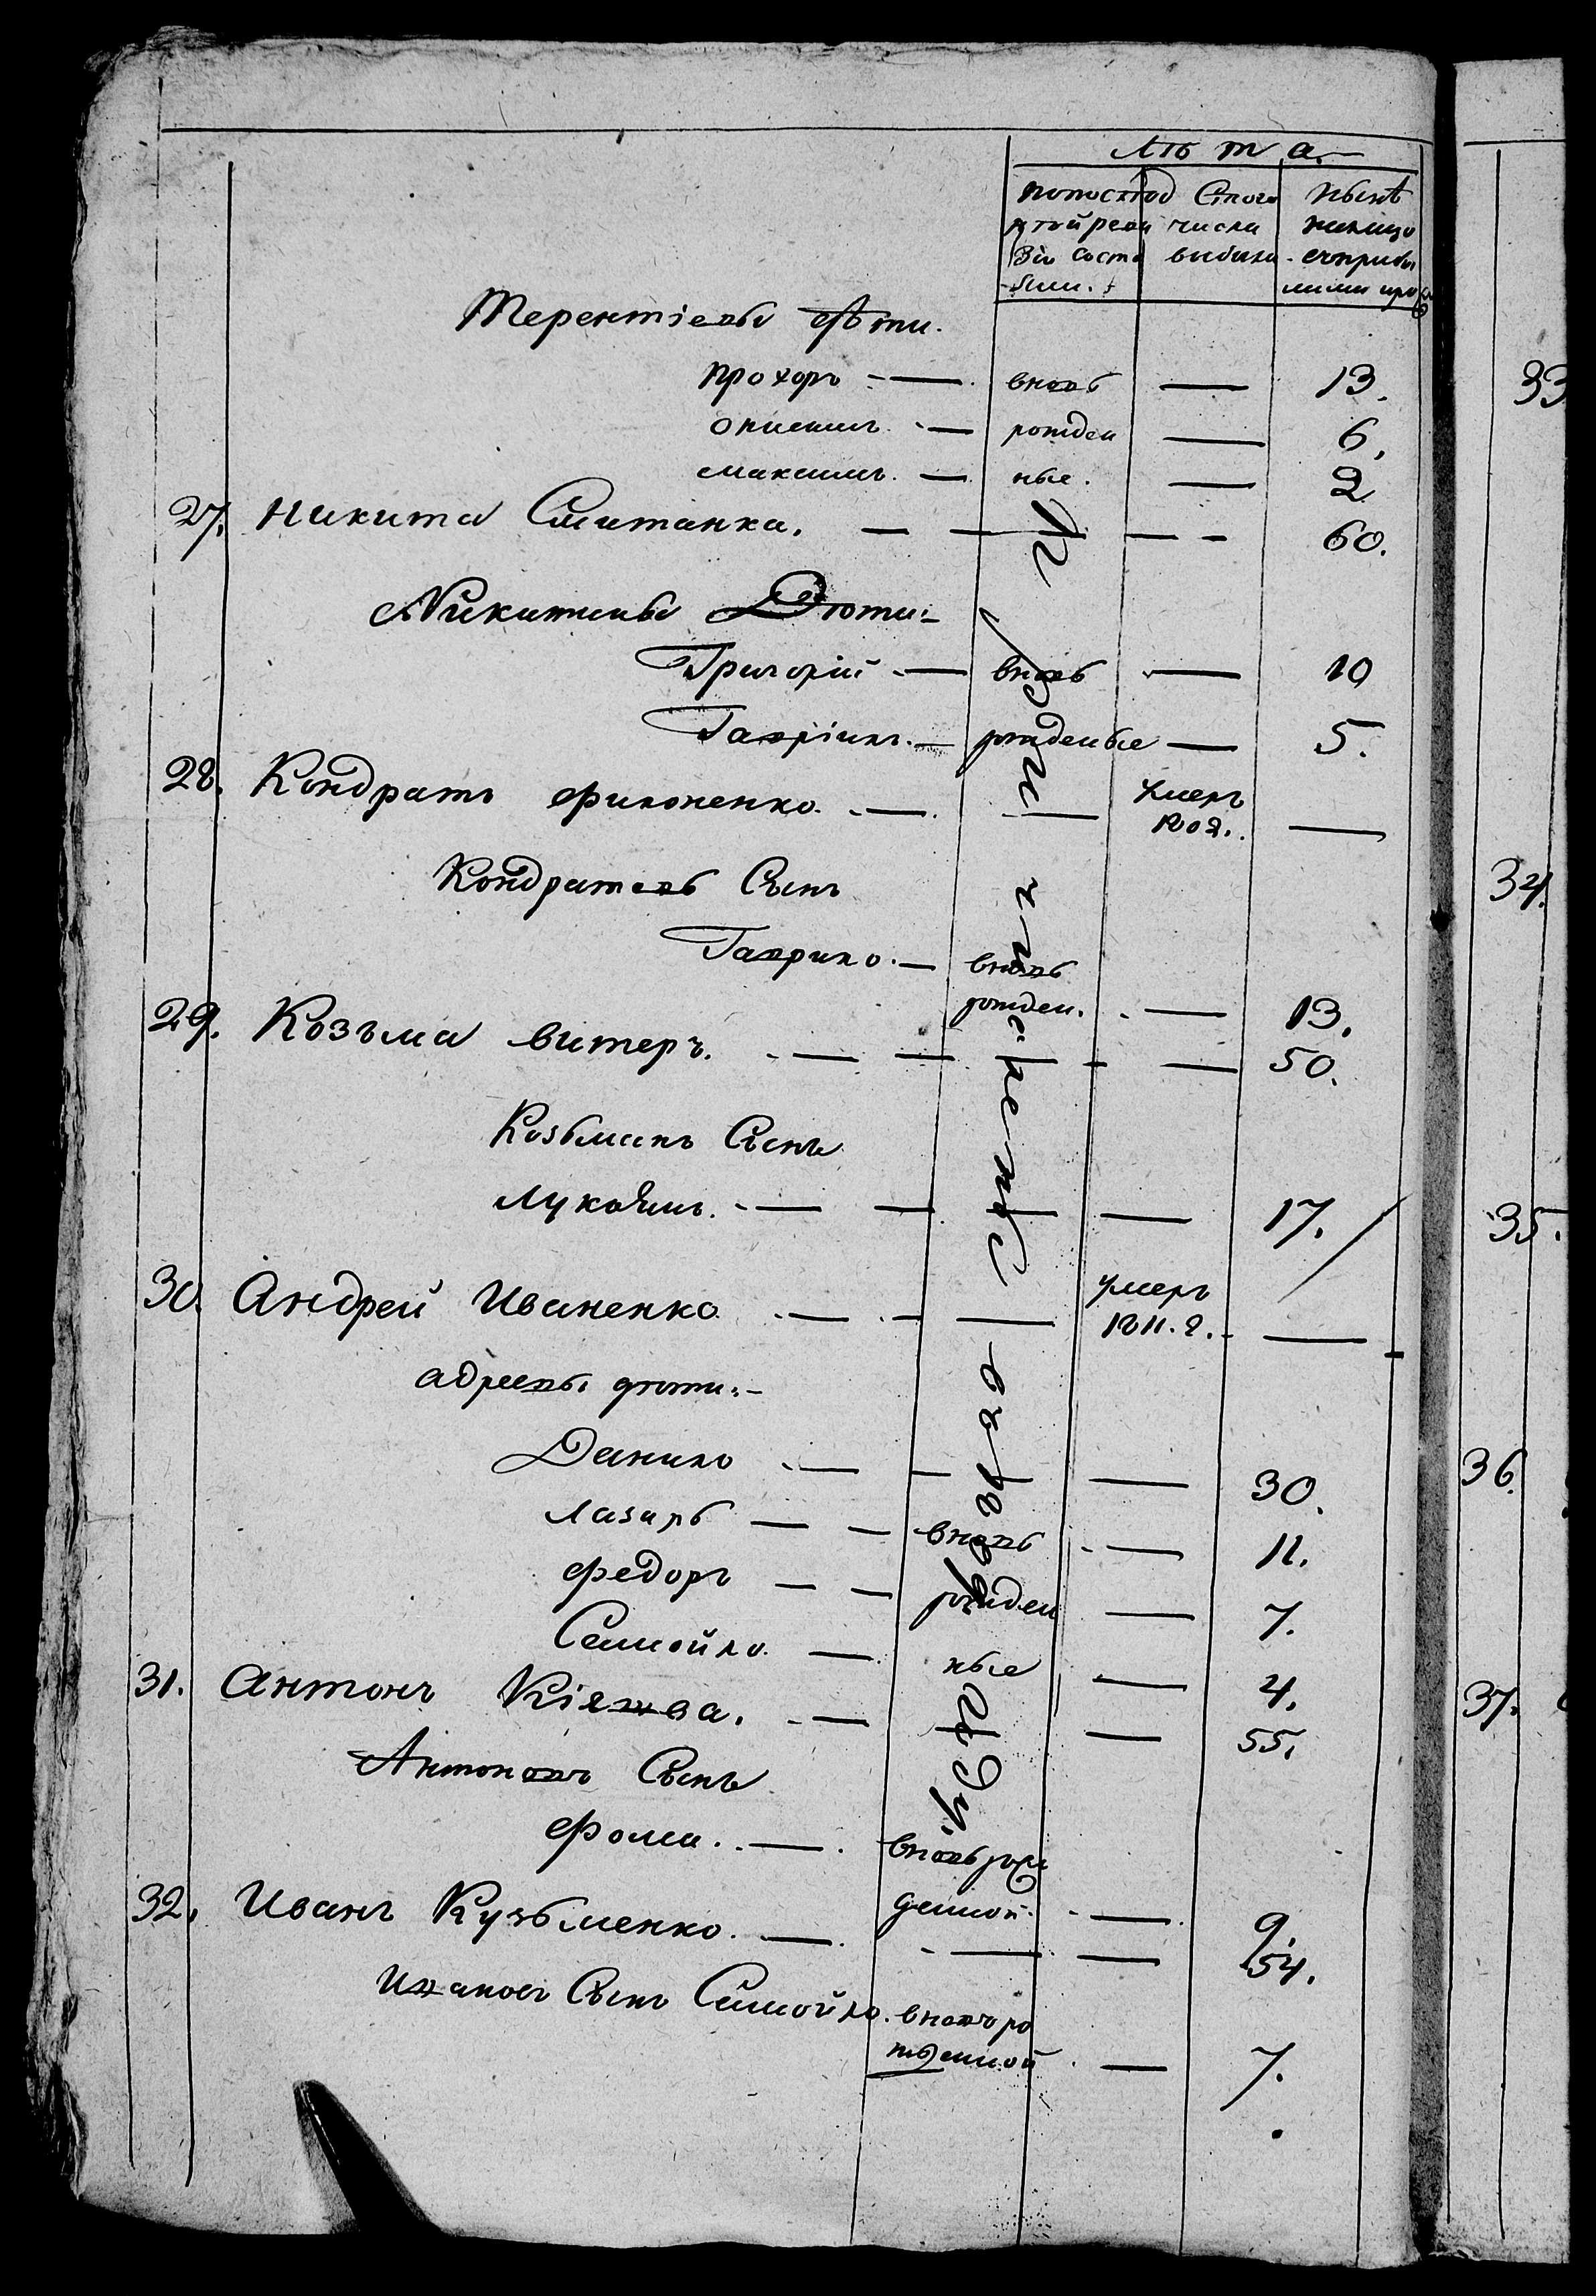 Лѣта.
Попослѣд Стого Нынѣ
нѣй реви числа налицо
зіи состо выбыли счприбы
яли. лыми
Терентіевы дѣти.
прохоръ — вновь — 13.
онисимъ. — рожден — 6.
максимъ. — ные. — 2
27. Никита Смитанка. — — — — 60.
Никитины Дѣти:
Григорій — вновь — 10
Гавріилъ. — рожденые — 5.
28. Кондратъ Филоненко. — — умеръ —
180
Кондратовъ Сынъ
Гаврило. — вновь
рожден. — 13.
29. Козьма витеръ. — — — — 50.
Козьминъ Сынъ
Лукьянъ. — — — — 17.
30. Андрей Иваненко — — — умеръ
1811. г. —
адреевы дѣти:
Данило — — — — 30.
Лазарь — — вновь — 11.
Федоръ — — рожден — 7.
Самойло. — ные — 4.
31. Антонъ Кіяшва. — — — 55.
Антоновъ Сынъ
Фома. — вновь рож
деной. — 9.
32. Иванъ Кузьменко. — — — 54.
Ивановъ Сынъ Самойло. вновъ ро
жденной — 7.
33
34.
35.
36.
37.